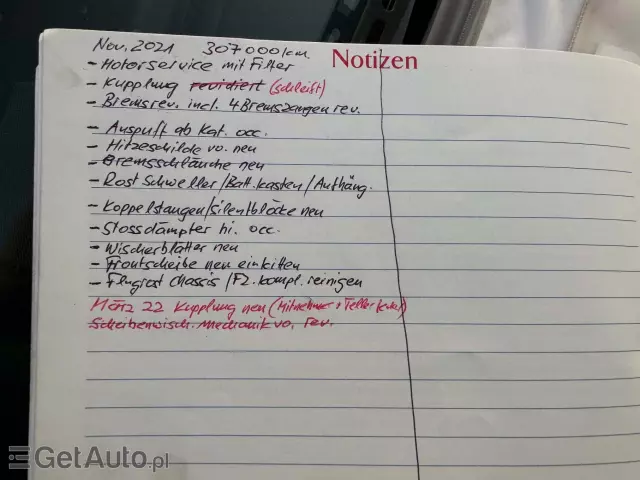 Nov. 2021 307000km.
Notizen
- Motorservice mit Filter
- Kupplung revidiert (schleift)
- Bremsrev. incl. 4 Bremszangen rev.
- Auspuff ab Kat. occ.
- Hitzeschilde vo. neu
- Bremsschläuche neu
- Rost Schweller/Batt.kasten/Aufhäng.
- Koppelstangen/Silentblöcke neu
- Stossdämpfer hi. occ.
- Wischerblätter neu
- Frontscheibe neu einkitten
- Flugrost Chassis / Fz. kompl. reinigen
März 22 Kupplung neu (Mitnehmer + Teller
Scheibenwisch. Mechanik vo. rev.
GetAuto.pl